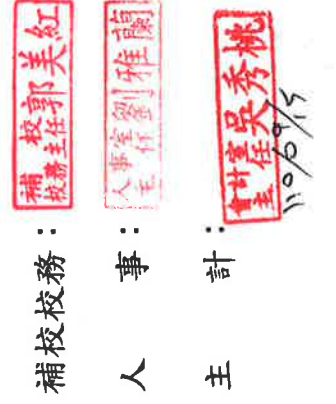 補校校務：
補校
校務主任郭美紅
人　事：
人事室
主任劉雅蘭
主　計：
會計室
主任吳秀桃
110/09/15